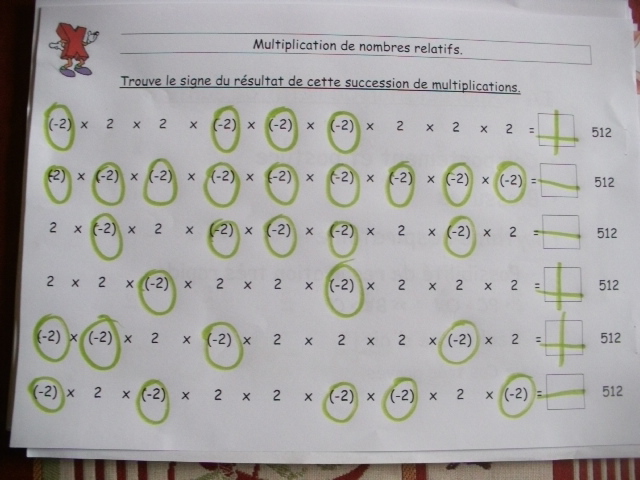 Multiplication de nombres relatifs.
Trouve le signe du résultat de cette succession de multiplications.
(-2) x 2 x 2 x (-2) x (-2) x (-2) x 2 x 2 x 2 = + 512
(-2) x (-2) x (-2) x (-2) x (-2) x (-2) x (-2) x (-2) x (-2) = - 512
2 x (-2) x 2 x (-2) x (-2) x (-2) x 2 x (-2) x 2 = - 512
2 x 2 x (-2) x 2 x 2 x (-2) x 2 x 2 x 2 = + 512
(-2) x (-2) x 2 x (-2) x 2 x 2 x 2 x (-2) x 2 = + 512
(-2) x 2 x (-2) x 2 x 2 x (-2) x (-2) x 2 x (-2) = - 512